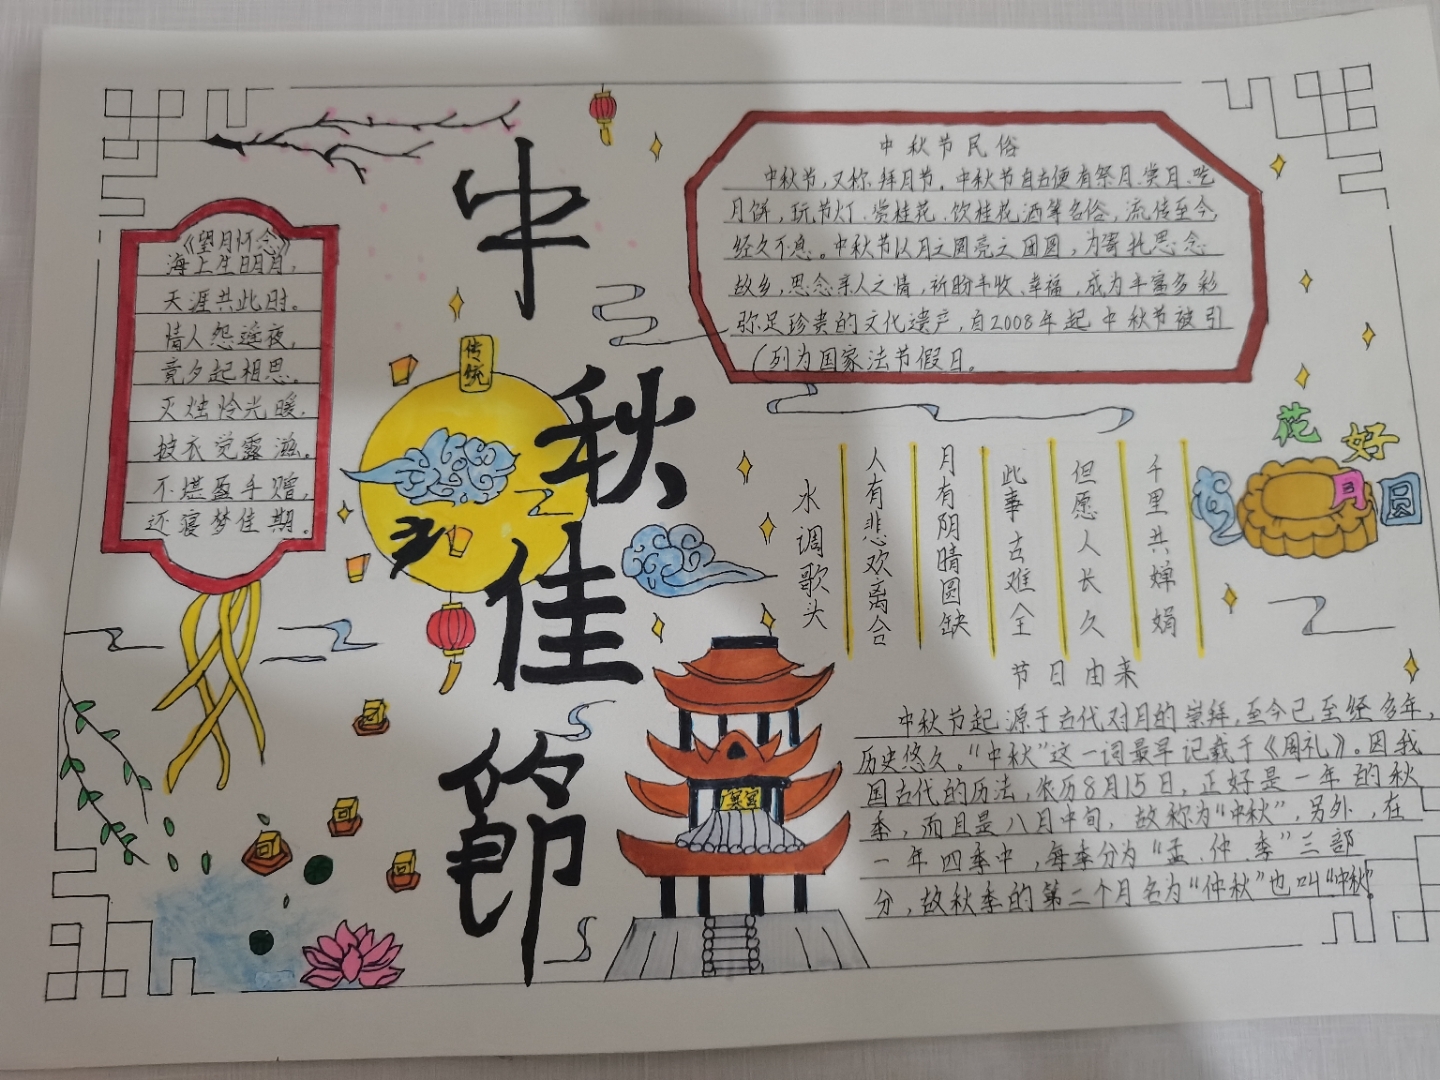 中秋佳節
传统
《望月怀念》
海上生明月，
天涯共此时。
情人怨遥夜，
竟夕起相思。
灭烛怜光暖，
披衣觉露滋。
不堪盈手赠，
还寝梦佳期。
中秋节民俗
中秋节，又称拜月节。中秋节自古便有祭月、赏月、吃
月饼，玩节灯、赏桂花、饮桂花酒等名俗，流传至今，
经久不息。中秋节以月之圆亮之团圆，为寄托思念
故乡，思念亲人之情，祈盼丰收、幸福，成为丰富多彩
弥足珍贵的文化遗产，自2008年起中秋节被引
（列为国家法节假日。
花好月圆
水调歌头
人有悲欢离合
月有阴晴圆缺
此事古难全
但愿人长久
千里共婵娟
节日由来
中秋节起源于古代对月的崇拜，至今已至经多年，
历史悠久。“中秋”这一词最早记载于《周礼》。因我
国古代的历法，农历8月15日，正好是一年的秋
季，而且是八月中旬，故称为“中秋”，另外，在
一年四季中，每季分为“孟、仲、季”三部
分，故秋季的第二个月名为“仲秋”也叫“中秋”